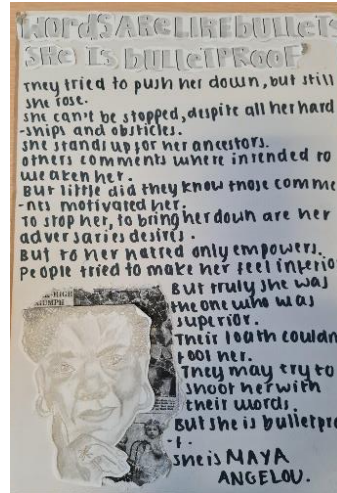 WORDS ARE LIKE BULLETS
SHE IS BULLETPROOF
They tried to push her down, but still
she rose.
she can't be stopped, despite all her hard
-ships and obsticles.
she stands up for her ancestors.
others comments where intended to
weaken her.
But little did they know those comme
-nts motivated her.
To stop her, to bring her down are her
adversaries desires.
But to her hatred only empowers.
People tried to make her feel inferio
But truly she was
the one who was
superior.
Their loath couldn
fool her.
They may try to
shoot her with
their words.
But she is bulletpro
-f.
she is MAYA
ANGELOU.
HIGH
IUMPH